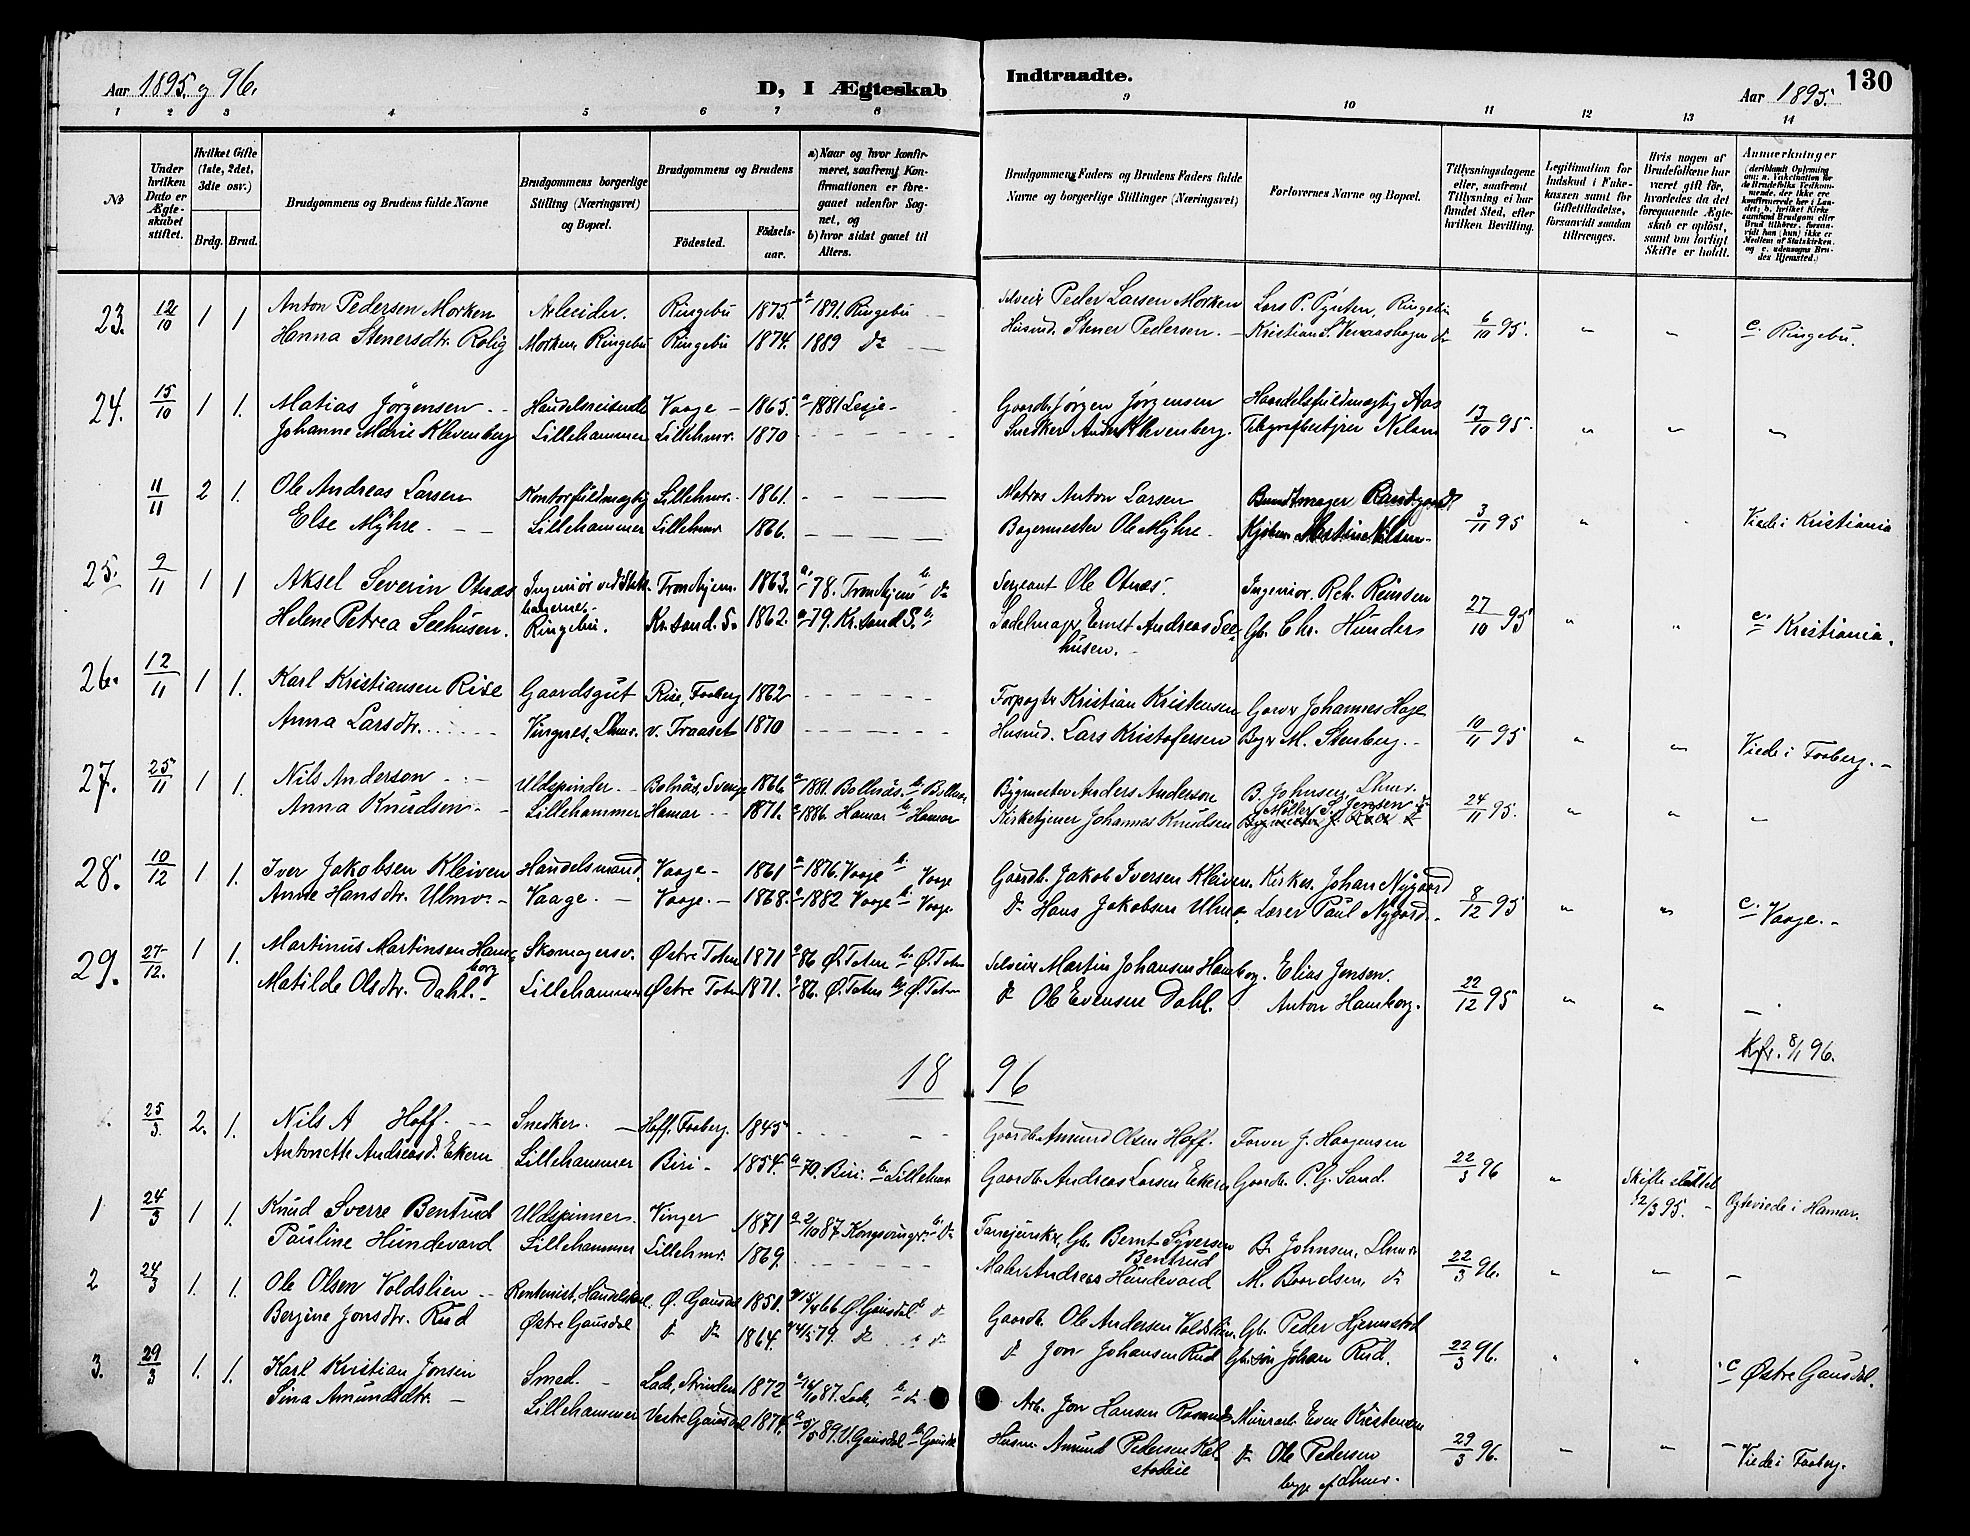 Aar 1895. og 96.
D, I Ægteskab
Indtraadte.
Aar 1895.
130
1 2 3 4 5 6 7 8 9 10 11 12 13 14
No
Under hvilken Dato er Ægteskabet stiftet.
Hvilket Gifte (1ste, 2det, 3die osv.)
Brdg. Brud.
Brudgommens og Brudens fulde Navne
Brudgommens borgerlige Stilling (Næringsvei) og Bopæl.
Brudgommens og Brudens
Fødested.
Fødsels-aar.
a) Naar og hvor konfirmeret, saafremt Konfirmationen er foregaaet udenfor Sognet, og
b) hvor sidst gaaet til Alters.
Brudgommens Faders og Brudens Faders fulde Navne og borgerlige Stillinger (Næringsvei)
Forlovernes Navne og Bopæl.
Tillysningsdagene eller, saafremt Tillysning ei har fundet Sted, efter hvilken Bevilling.
Legitimation for Indskud i Enkekassen samt for Giftetilladelse, forsaavidt saadan tiltrænges.
Hvis nogen af Brudefolkene har været gift før, hvorledes da det foregaaende Ægteskab er opløst, samt om lovligt Skifte er holdt.
Anmærkninger
(deriblandt Oplysning om: a. Vakcination for de Brudefolks Vedkommende, der ikke ere konfirmerede her i Landet; b. hvilket Kirkesamfund Brudgom eller Brud tilhører, forsaavidt han (hun) ikke er Medlem af Statskirken, og c. udensogns Brudes Hjemsted.)
23. 12/10 1 1 Anton Pedersen Morken Arbeider. Ringebu 1875 a 1891. Ringebu Selveier Peder Larsen Morken Lars P. Pynten, Ringebu
Hanna Stenersdtr. Rolig Morken Ringebu Ringebu 1874. 1889 do Husmd. Stener Pedersen. Kristian S. 6/10 95. " " c. Ringebu.
24. 15/10 1 1. Matias Jørgensen Handelsreisende Vaage 1865. a 1881 Lesje Gaardb. Jørgen Jørgensen Handelsfuldmægtig Aas
Johanne Marie Klevenberg Lillehammer Lillehmr. 1870 Snedker Anders Klevenberg. Telegrafbestyrer Nilsen 13/10 95. " " "
11/11 2 1. Ole Andreas Larsen Kontorfuldmægtig Lillehmr. 1861. Matros Anton Larsen Bundtmager
Else Myhre. Lillehammer Lillehmr 1866. Bagermester Ole Myhre. Nilsen 3/11 95 " " Viede i Kristiania
25. 9/11 1 1 Aksel Severin Otnæs Ingeniør ved Stats- Trondhjem. 1863. a. 78. Trondhjem b. do Sergeant Ole Otnæs. Ingeniør. Rch. Reinsen
banerne.
Helene Petrea Seehusen. Ringebu. Kr.sand. S. 1862. a 79. Kr.sand S. b Sadelmager Ernst Andreas See- Gb. Chr. Hunder 27/10 95 " " c. Kristiania.
husen.
26. 12/11 1 1. Karl Kristiansen Rise Gaardsgut Rise, Faaberg 1862 Forpagter Kristian Kristensen Garver Johannes Hage
Anna Larsdtr. Vingnes, Lhmr. v. Fraaset 1870 Husmd. Lars Kristofersen Bager M. Stenberg. 10/11 95 " " Viede i Faaberg.
27. 25/11 1 1. Nils Anderson Uldspinder. Bolnäs, Sverige 1866 a 1881. Bollnäs. b. Bollnäs Bygmester Anders Anderson B. Johnsen, Lhmr.
Anna Knudsen. Lillehammer Hamar 1871. a 1886. Hamar b. Hamar Kirketjener Johannes Knudsen Møller S. Jensen do 24/11 95. " "
28. 10/12 1 1. Iver Jakobsen Kleiven Handelsmand. Vaage 1861 a 1876. Vaage b. Vaage Gaardb. Jakob Iversen Kleiven. Kirkes. Johan Nygaard
Anne Hansdtr. Ulmo. Vaage. Vaage. 1868. a 1882 Vaage b. Vaage. do Hans Jakobsen Ulmo. Lærer Paul Nygard. 8/12 95 " " c. Vaage.
29. 27/12. 1 1. Martinus Martinsen Ham- Skomagersv. Østre Toten 1871 a 86 Ø. Toten b. Ø. Toten Selveier Martin Johansen Hamborg. Elias Jensen.
borg
Matilde Olsdtr. Dahl. Lillehammer Østre Toten 1871. a 86. Ø. Toten b. Ø. Toten do Ole Evensen Dahl. Anton Hamborg. 22/12 95 " "
Kfr. 8/1 96.
1896
25/3. 2. 1. Nils A Hoff. Snedker. Hoff, Faaberg. 1845 Gaardb. Amund Olsen Hoff. Farver J. Haagensen
Antonette Andreasd. Ekern Lillehammer Biri 1854. a 70. Biri. b. Lillehmr Gaardb. Andreas Larsen Ekern Gaardb. P. G. Sand. 22/3 96 " Skifte sluttet 12/3 95. Ogteviede i Hamar.
1 24/3 1 1. Knud Sverre Bentrud Uldspinner. Vinger 1871 a 2/10 87. Kongsvinger b. do Gb. Bernt Syversen Bentrud B. Johnsen, Lhmr
Pauline Hundevard Lillehammer Lillehmr. 1869. Maler Andreas Hundevard M. Baardsen, do 22/3 96. " "
2 24/3 1. 1. Ole Olsen Voldslien Kontorist, Ø. Gausdal 1851. 66 Ø. Gausdal b do Gaardb. Ole Andersen Voldslien Gb. Peder Hjemstad
Berjene Jonsdtr. Rud Østre Gausdal do do 1864. 79. do do do Jon Johansen Rud Gb.søn Johan Rud. 22/3 96. " " c Østre Gausdal.
3. 29/3 1. 1. Karl Kristian Jonsen Smed. Lade, Strinden 1872 87. Lade, b. do Arb. Jon Hansen Murerarb. Even Kristensen
Sina Amundsdtr. Lillehammer Vestre Gausdal 1874. 89. V. Gausdal b. Gausdal Husm. Amund Pedersen Kal- do Ole Pedersen 29/3 96. " " Viede i Faaberg.
stadeie begge af Lhmr.